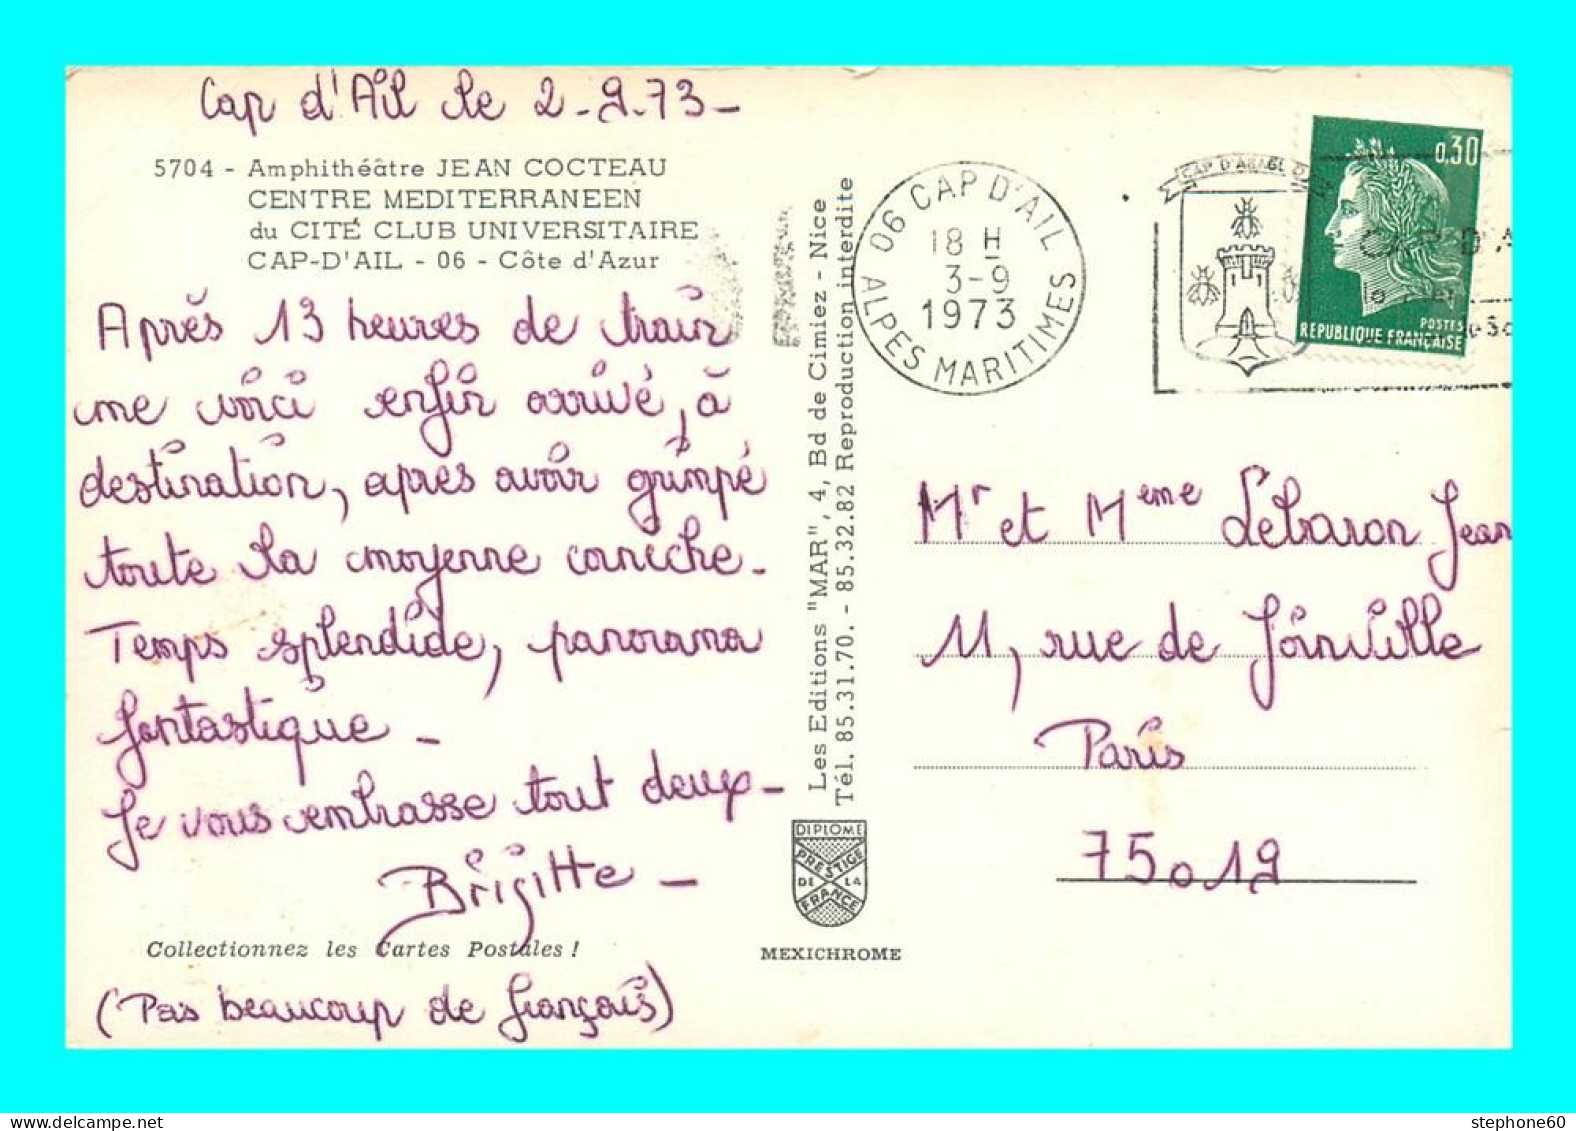 Cap d'Ail le 2-9-73-
5704 - Amphithéâtre JEAN COCTEAU
CENTRE MEDITERRANEEN
du CITÉ CLUB UNIVERSITAIRE
CAP-D'AIL - 06 - Côte d'Azur
Après 13 heures de train
me voici enfin arrivé, à
destination, après avoir grimpé
toute la moyenne corniche.
Temps splendide, panorama
fantastique -
Je vous embrasse tout deux -
Brigitte -
Collectionnez les Cartes Postales !
(Pas beaucoup de français)
Les Editions "MAR", 4, Bd de Cimiez - Nice
Tél. 85.31.70. - 85.32.82 Reproduction interdite
DIPLOME
PRESTIGE
DE LA
FRANCE
MEXICHROME
06 CAP D'AIL
18 H
3-9
1973
ALPES MARITIMES
CAP D'A
0,30
POSTES
REPUBLIQUE FRANÇAISE
Mr et Meme Lebaron Jean
11, rue de Joinville
Paris
75019
stephone60